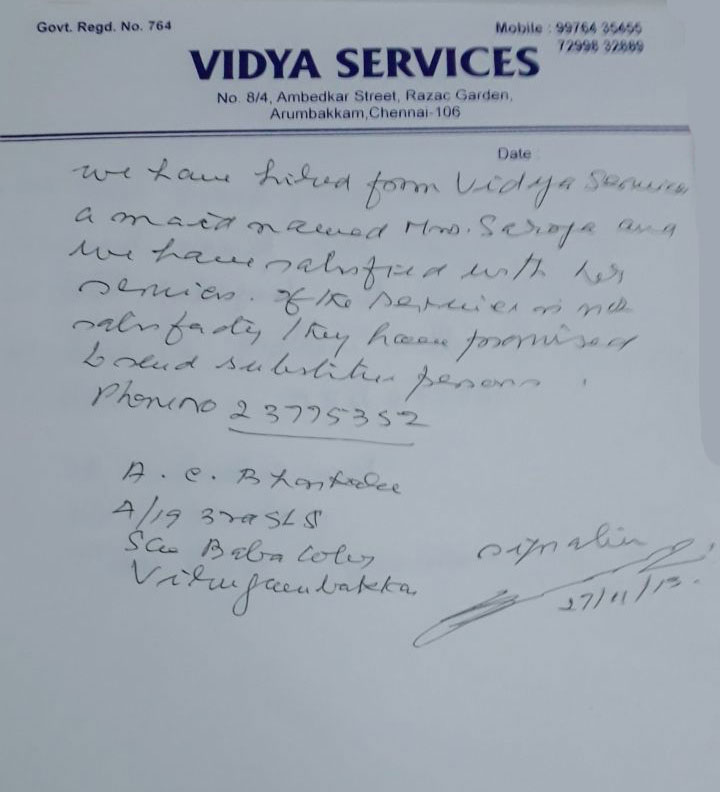 Govt. Regd. No. 764
Mobile : 99764 35455
72998 32889
VIDYA SERVICES
No. 8/4, Ambedkar Street, Razac Garden,
Arumbakkam,Chennai-106
Date :
we have hired form Vidya Services
a maid named Mrs. Saroja and
we have satisfied with her
services. If the service is not
satisfactory they have promised
to send substitute persons.
Phone no 23775352
A. C.
4/19 3rd
Sai Baba Colony
Virugambakka
signature
27/11/13.